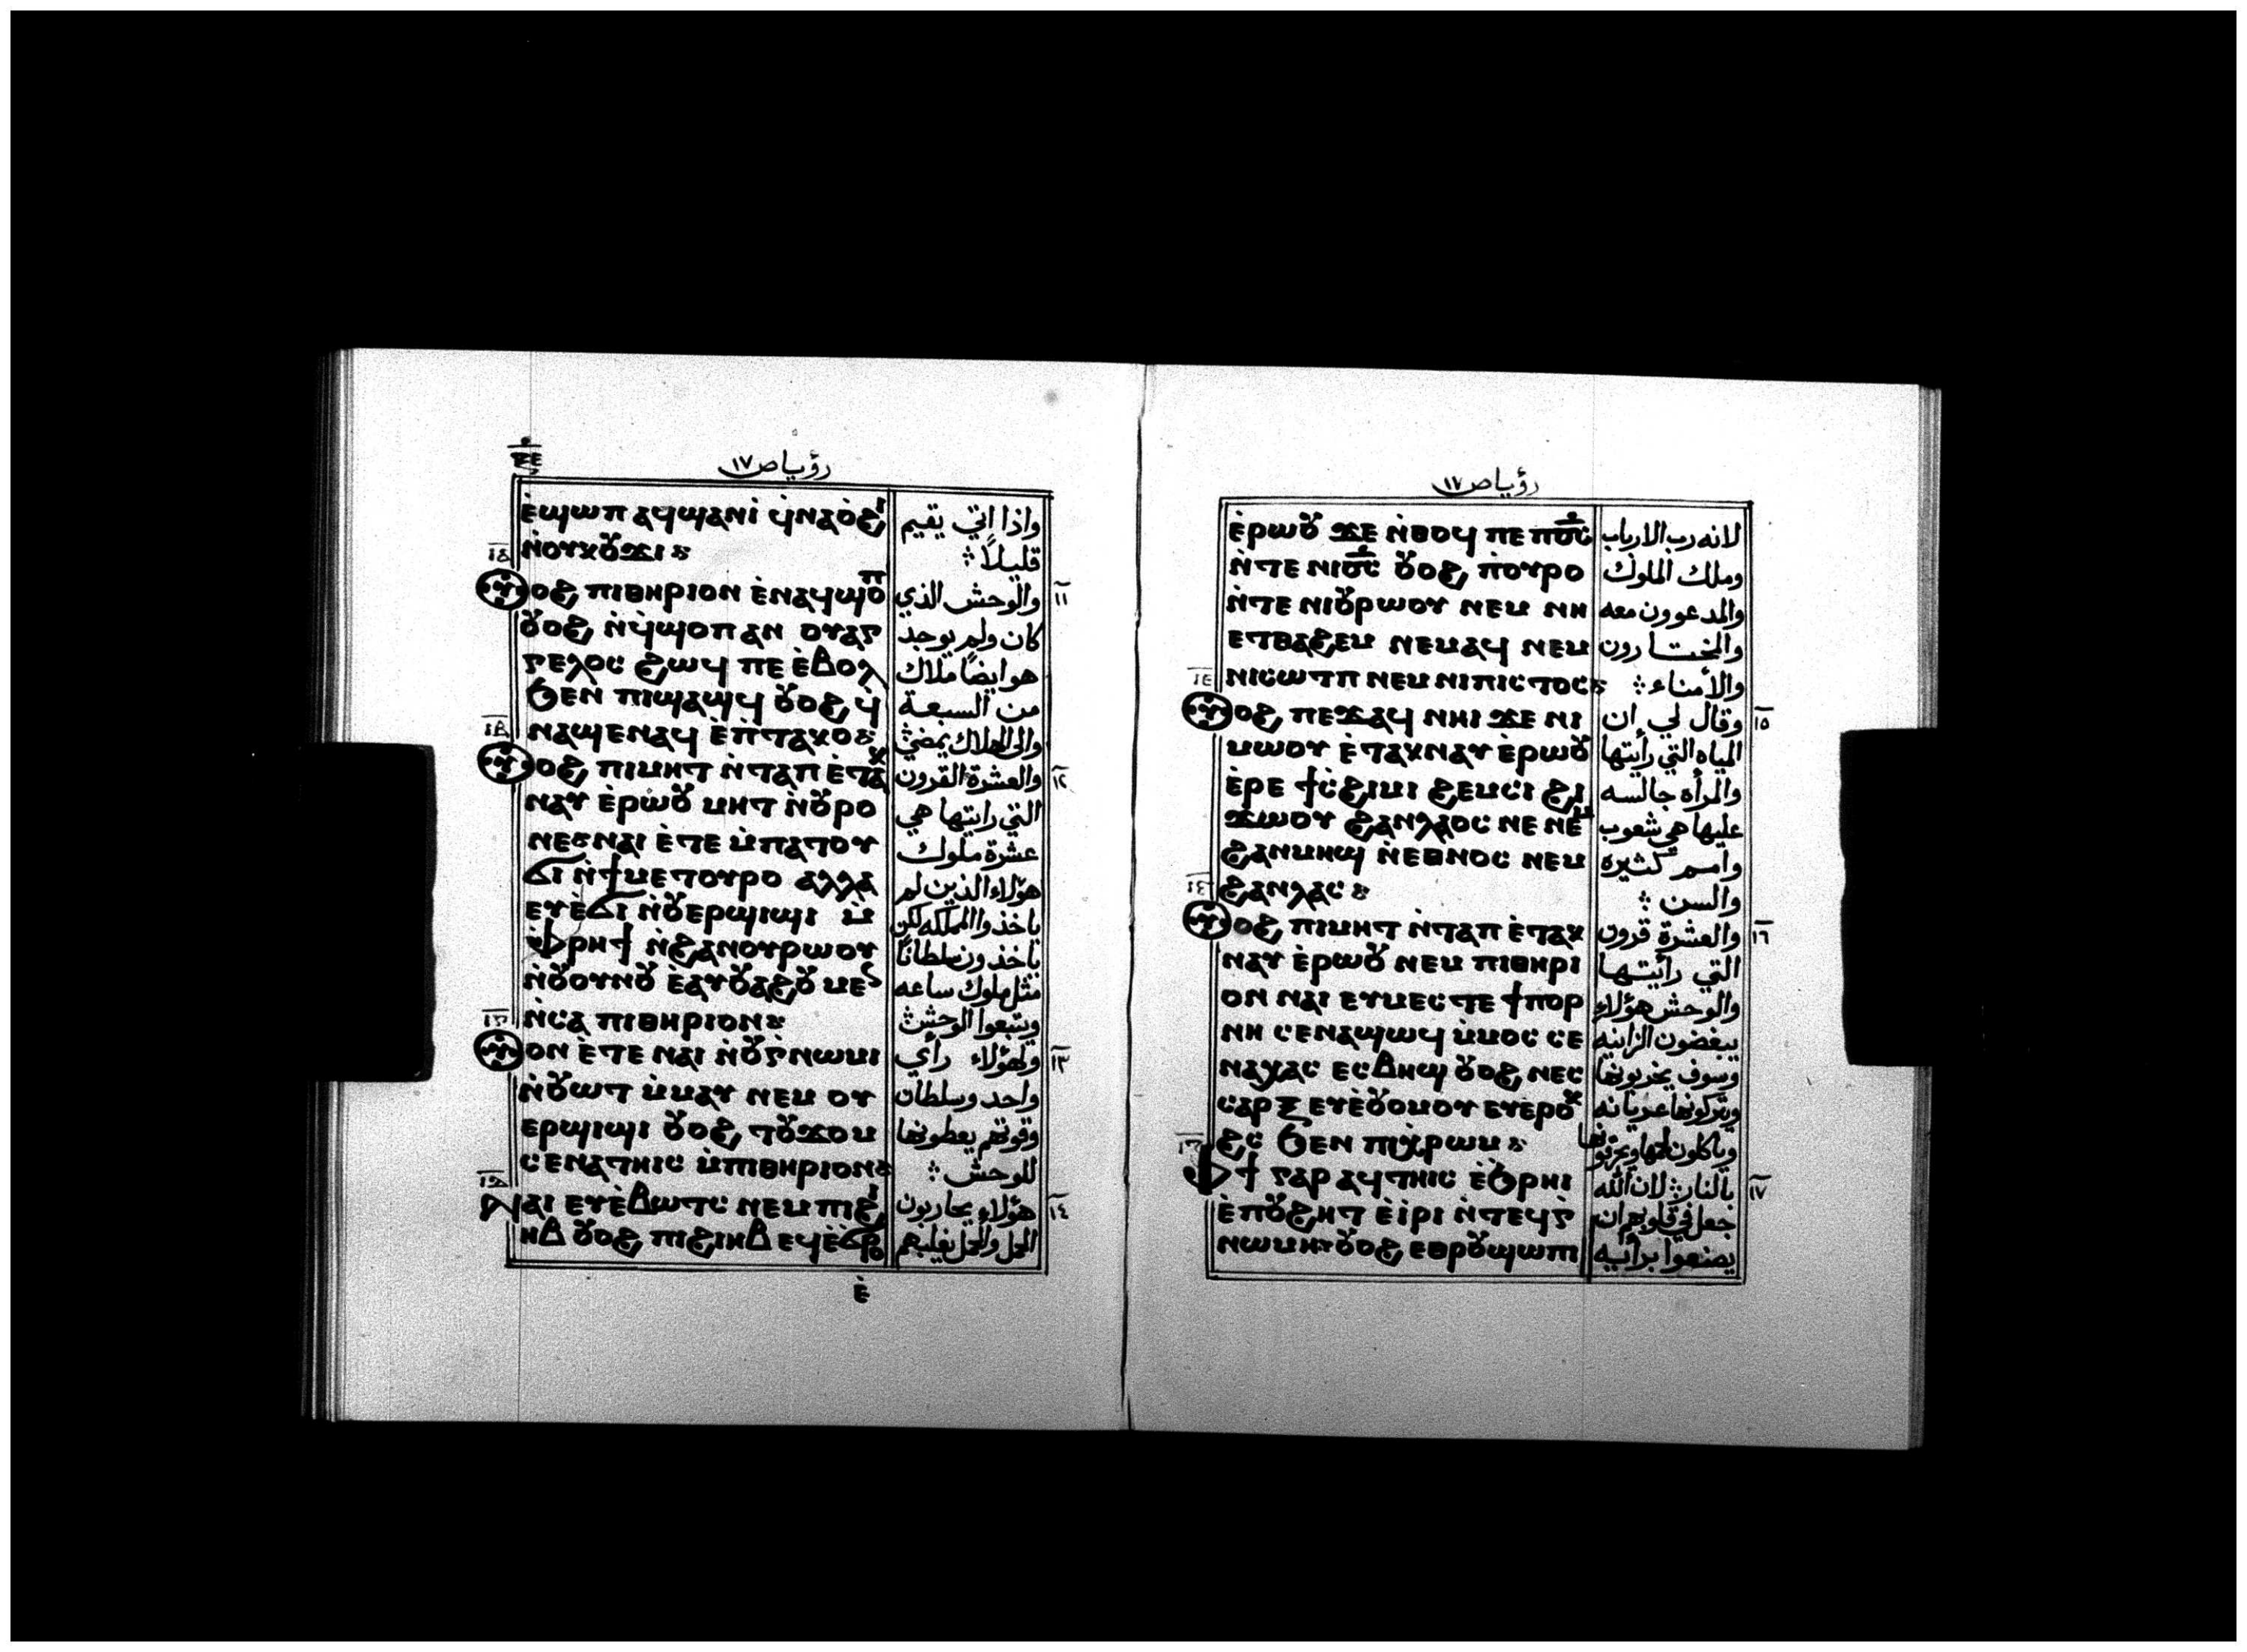 رؤيا ص ١٧
ⲉ̀ϣⲱⲡ ⲁϥϣⲁⲛⲓ̀ ϥ̀ⲛⲁⲟ̀ϩⲓ
ⲛ̀ⲟⲩⲕⲟⲩϫⲓ
ⲟϩ ⲡⲓⲑⲏⲣⲓⲟⲛ ⲉ̀ⲛⲁϥϣⲟⲡ
ⲟⲩⲟϩ ⲛ̀ϥ̀ϣⲟⲡ ⲁⲛ ⲟⲩⲁⲅ
ⲅⲉⲗⲟⲥ ϩⲱϥ ⲡⲉ ⲉ̀ⲃⲟⲗ
ϧⲉⲛ ⲡⲓϣⲁϣϥ ⲟⲩⲟϩ ϥ̀
ⲛⲁϣⲉⲛⲁϥ ⲉ̀ⲡ̀ⲧⲁⲕⲟ
ⲟϩ ⲡⲓⲙⲏⲧ ⲛ̀ⲧⲁⲡ ⲉ̀ⲧⲁⲕ
ⲛⲁⲩ ⲉ̀ⲣⲱⲟⲩ ⲙⲏⲧ ⲛ̀ⲟⲩⲣⲟ
ⲛⲉ ⲛⲁⲓ ⲉ̀ⲧⲉ ⲙ̀ⲡⲁⲧⲟⲩ
ϭⲓ ⲛ̀ϯⲙⲉⲧⲟⲩⲣⲟ ⲁⲗⲗⲁ
ⲉⲩⲉ̀ϭⲓ ⲛ̀ⲟⲩⲉⲣϣⲓϣⲓ ⲙ̀
ⲫ̀ⲣⲏϯ ⲛ̀ϩⲁⲛⲟⲩⲣⲱⲟⲩ
ⲛ̀ⲟⲩⲟⲩⲛⲟⲩ ⲉ̀ⲁⲩⲟⲩⲁϩⲟⲩ
ⲛ̀ⲥⲁ ⲡⲓⲑⲏⲣⲓⲟⲛ
ⲟⲛ ⲉ̀ⲧⲉ ⲛⲁⲓ ⲛ̀ⲟⲩⲅ̀ⲛⲱⲙⲓ
ⲛ̀ⲟⲩⲱⲧ ⲙ̀ⲙⲁⲩ ⲛⲉⲙ ⲟⲩ
ⲉⲣϣⲓϣⲓ ⲟⲩⲟϩ ⲧⲟⲩϫⲟⲙ
ⲥⲉⲛⲁⲧⲏⲓⲥ ⲙ̀ⲡⲓⲑⲏⲣⲓⲟⲛ
ⲛⲁⲓ ⲉⲩⲉ̀ⲃⲱⲧⲥ ⲛⲉⲙ ⲡⲓϩⲓ
ⲏⲃ ⲟⲩⲟϩ ⲡⲓϩⲓⲏⲃ ⲉϥⲉ̀ϭⲣⲟ
ⲉ̀
واذا اتي يقيم
قليلاً
١١ والوحش الذي
كان ولم يوجد
هو ايضاً ملاك
من السبعة
والى الهلاك يمضي
١٢ والعشرة القرون
التي رايتها هي
عشرة ملوك
هؤلاء الذين لم
ياخذوا المملكه لكن
ياخذون سلطاناً
مثل ملوك ساعه
ويتبعوا الوحش
١٣ ولهؤلاء رأي
واحد وسلطان
وقوتهم يعطونها
للوحش
١٤ هؤلاء يحاربون
الحمل والحمل يغلبهم
رؤيا ص ١٧
ⲉ̀ⲣⲱⲟⲩ ϫⲉ ⲛ̀ⲑⲟϥ ⲡⲉ ⲡϭⲥ
ⲛ̀ⲧⲉ ⲛⲓϭⲥ ⲟⲩⲟϩ ⲡ̀ⲟⲩⲣⲟ
ⲛ̀ⲧⲉ ⲛⲓⲟⲩⲣⲱⲟⲩ ⲛⲉⲙ ⲛⲏ
ⲉⲧⲑⲁϩⲉⲙ ⲛⲉⲙⲁϥ ⲛⲉⲙ
ⲛⲓⲥⲱⲧⲡ ⲛⲉⲙ ⲛⲓⲡⲓⲥⲧⲟⲥ
ⲟϩ ⲡⲉϫⲁϥ ⲛⲏⲓ ϫⲉ ⲛⲓ
ⲙⲱⲟⲩ ⲉ̀ⲧⲁⲕⲛⲁⲩ ⲉ̀ⲣⲱⲟⲩ
ⲉ̀ⲣⲉ ϯⲥ̀ϩⲓⲙⲓ ϩⲉⲙⲥⲓ ϩⲓ
ϫⲱⲟⲩ ϩⲁⲛⲗⲁⲟⲥ ⲛⲉ ⲛⲉⲙ
ϩⲁⲛⲙⲏϣ ⲛ̀ⲉⲑⲛⲟⲥ ⲛⲉⲙ
ϩⲁⲛⲗⲁⲥ
ⲟϩ ⲡⲓⲙⲏⲧ ⲛ̀ⲧⲁⲡ ⲉ̀ⲧⲁⲕ
ⲛⲁⲩ ⲉ̀ⲣⲱⲟⲩ ⲛⲉⲙ ⲡⲓⲑⲏⲣⲓ
ⲟⲛ ⲛⲁⲓ ⲉⲩⲙⲉⲥⲧⲉ ϯⲡⲟⲣ
ⲛⲏ ⲥⲉⲛⲁϣⲱϥ ⲙ̀ⲙⲟⲥ ⲥⲉ
ⲛⲁⲭⲁⲥ ⲉⲥⲃⲏϣ ⲟⲩⲟϩ ⲛⲉⲥ
ⲥⲁⲣⲝ ⲉⲩⲉ̀ⲟⲩⲟⲙⲟⲩ ⲉⲩⲉⲣⲟⲕ
ϩⲥ ϧⲉⲛ ⲡⲓⲭ̀ⲣⲱⲙ
ⲫϯ ⲅⲁⲣ ⲁϥⲧⲏⲓⲥ ⲉ̀ϧⲣⲏⲓ
ⲉ̀ⲡⲟⲩϩⲏⲧ ⲉ̀ⲓⲣⲓ ⲛ̀ⲧⲉϥⲅ
ⲛⲱⲙⲏ ⲟⲩⲟϩ ⲉⲑⲣⲟⲩϣⲱⲡⲓ
لانه رب الارباب
وملك الملوك
والمدعوون معه
والمختارون
والأمناء
١٥ وقال لي ان
المياه التي رأيتها
والمرأه جالسه
عليها هي شعوب
وامم كثيره
والسن
١٦ والعشرة قرون
التي رأيتها
والوحش هؤلاء
يبغضون الزانيه
وسوف يخربونها
ويتركونها عريانه
وياكلون لحمها ويحرقونها
١٧ بالنار لان الله
جعل في قلوبهم ان
يصنعوا برأيه